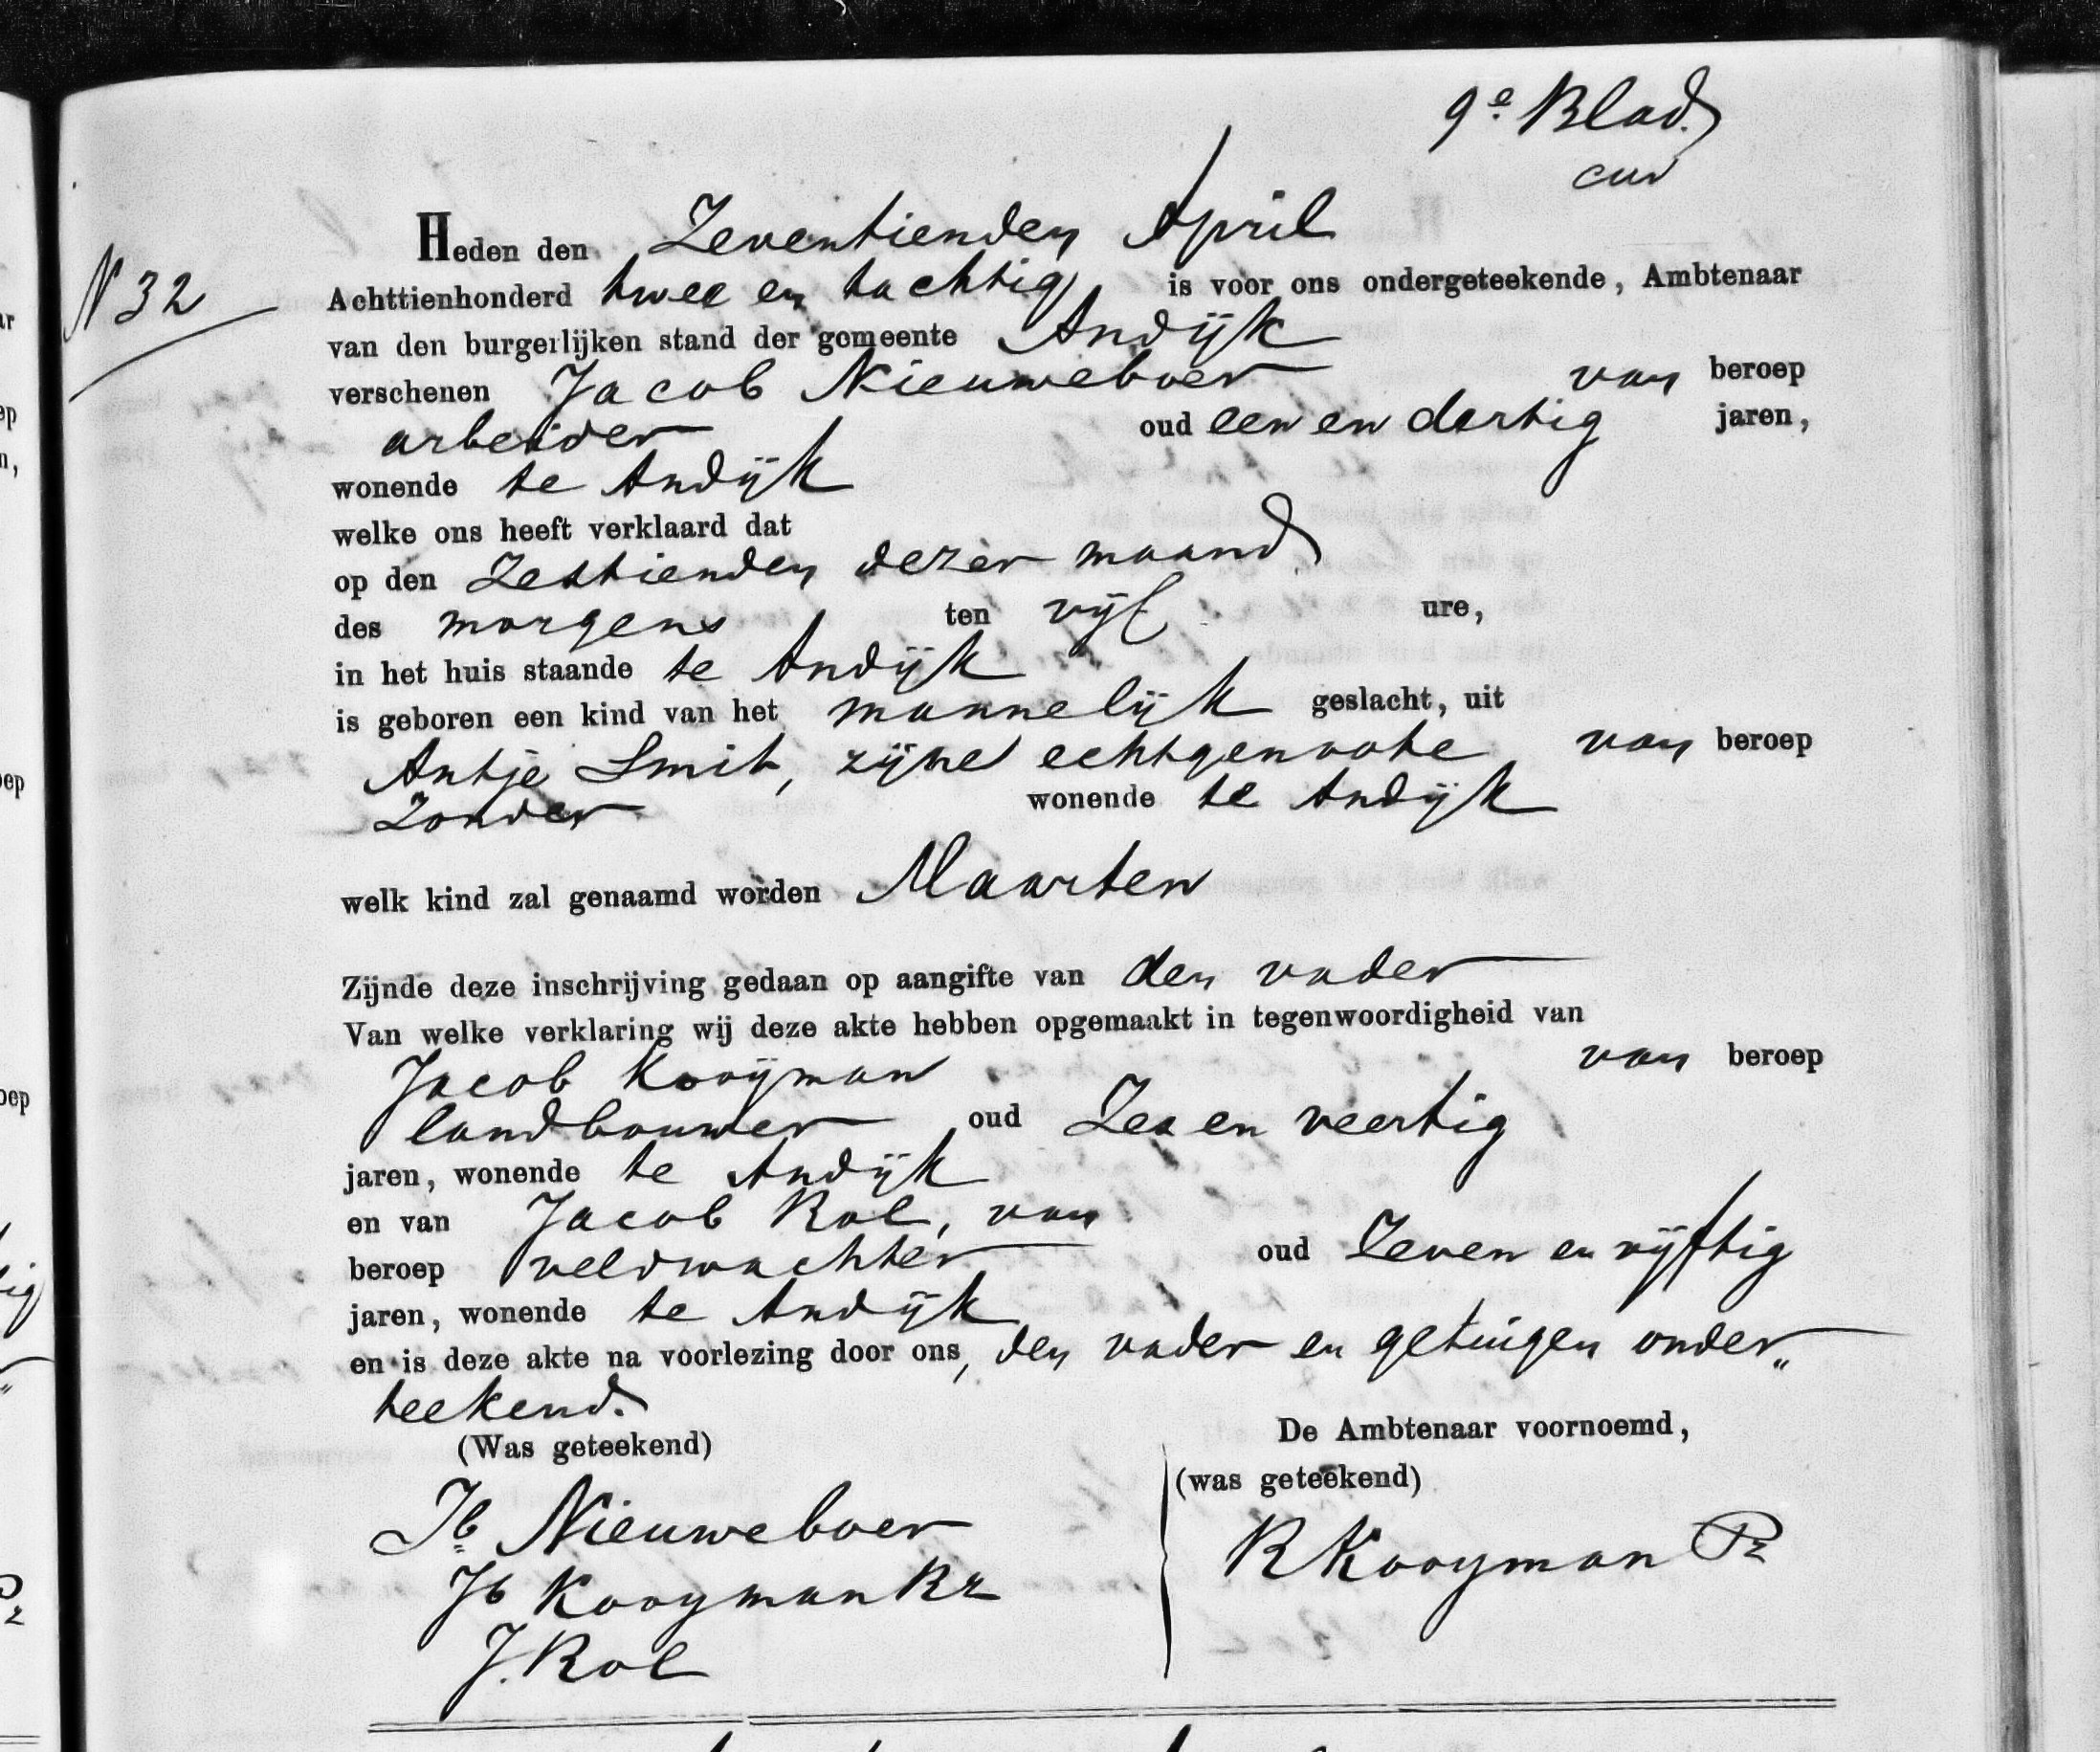 9e Blad.
N 32
Heden den Zeventienden April
Achttienhonderd twee en tachtig is voor ons ondergeteekende, Ambtenaar
van den burgerlijken stand der gemeente Andijk
verschenen Jacob Nieuweboer van beroep
arbeider oud een en dertig jaren,
wonende te Andijk
welke ons heeft verklaard dat
op den Zestienden dezer maand
des morgens ten vijf ure,
in het huis staande te Andijk
is geboren een kind van het mannelijk geslacht, uit
Antje Smit, zijne echtgenoote van beroep
Zonder wonende te Andijk
welk kind zal genaamd worden Maarten
Zijnde deze inschrijving gedaan op aangifte van den vader
Van welke verklaring wij deze akte hebben opgemaakt in tegenwoordigheid van
Jacob Kooijman van beroep
landbouwer oud Zes en veertig
jaren, wonende te Andijk
en van Jacob Rol, van
beroep veldwachter oud Zeven en vijftig
jaren, wonende te Andijk
en is deze akte na voorlezing door ons, den vader en getuigen onder„
teekend.
(Was geteekend) De Ambtenaar voornoemd,
(was geteekend)
Jb Nieuweboer
Jb Kooyman Rz
J. Rol
R Kooyman Pz